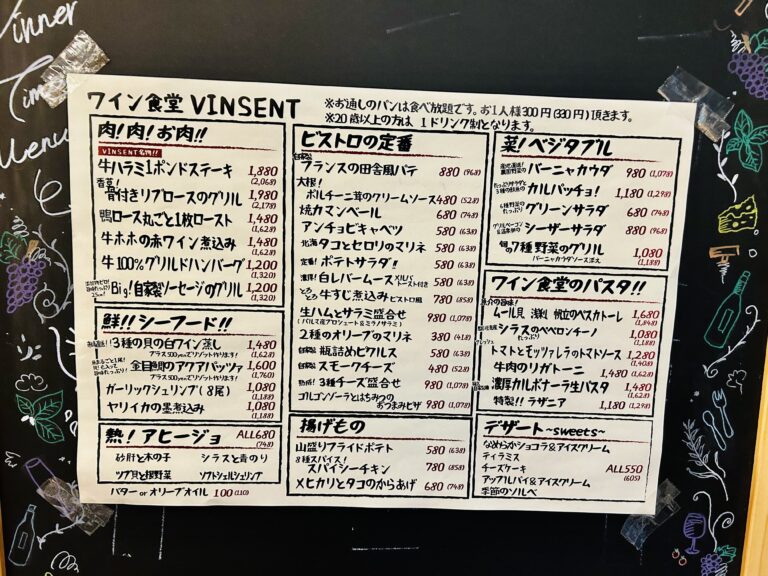 Dinner
Time
Menu
ワイン食堂 VINSENT
※お通しのパンは食べ放題です。お1人様300円(330円)頂きます。
※20歳以上の方は 1ドリンク制となります。
肉！肉！お肉!!
VINSENT名物!!
牛ハラミ1ポンドステーキ 1,880 (2,068)
骨付きリブロースのグリル 1,980 (2,178)
鴨ロース丸ごと1枚ロースト 1,480 (1,628)
牛ホホの赤ワイン煮込み 1,480 (1,628)
牛100%グリルドハンバーグ 1,200 (1,320)
Big!自家製ソーセージのグリル 1,200 (1,320)
鮮!! シーフード!!
3種の貝の白ワイン蒸し 1,480 (1,628)
プラス500yenでリゾット作ります!
金目鯛のアクアパッツァ 1,600 (1,760)
プラス500yenでリゾット作ります!
ガーリックシュリンプ(8尾) 1,080 (1,188)
ヤリイカの墨煮込み 1,080 (1,188)
熱！アヒージョ ALL680 (748)
砂肝と木の子 シラスと青のり
ツブ貝と根野菜 ソフトシェルシュリンプ
バター or オリーブオイル 100 (110)
ビストロの定番
自家製 フランスの田舎風パテ 880 (968)
大根！
ポルチーニ茸のクリームソース 480 (528)
焼カマンベール 680 (748)
アンチョビキャベツ 580 (638)
北海 タコとセロリのマリネ 580 (638)
定番！ ポテトサラダ! 580 (638)
濃厚！ 白レバームース メルバトースト付き 580 (638)
とろとろ 牛すじ煮込み ビストロ風 780 (858)
生ハムとサラミ盛合せ 980 (1,078)
(パルマ産プロシュート&ミラノサラミ)
2種のオリーブのマリネ 380 (418)
自家製 瓶詰めピクルス 580 (638)
自家製 スモークチーズ 480 (528)
熟成！ 3種チーズ盛合せ 980 (1,078)
ゴルゴンゾーラとはちみつの
おつまみピザ 980 (1,078)
揚げもの
山盛りフライドポテト 580 (638)
8種スパイス！
スパイシーチキン 780 (858)
メヒカリとタコのからあげ 680 (748)
菜！ベジタブル
産地直送！農園野菜の バーニャカウダ 980 (1,078)
カルパッチョ! 1,180 (1,298)
6種野菜のたっぷり グリーンサラダ 680 (748)
グリルベーコン&温泉卵の シーザーサラダ 980 (968)
旬の7種野菜のグリル 1,080 (1,188)
バーニャカウダソース添え
ワイン食堂のパスタ!!
ムール貝 浅利 帆立のペスカトーレ 1,680 (1,848)
シラスのペペロンチーノ 1,080 (1,188)
たっぷり
トマトとモッツァレラのトマトソース 1,280 (1,408)
牛肉のリガトーニ 1,480 (1,628)
濃厚カルボナーラ生パスタ 1,480 (1,628)
特製!! ラザニア 1,180 (1,298)
デザート ~sweets~
なめらかショコラ&アイスクリーム
ティラミス
チーズケーキ
ALL550 (605)
アップルパイ&アイスクリーム
季節のソルベ